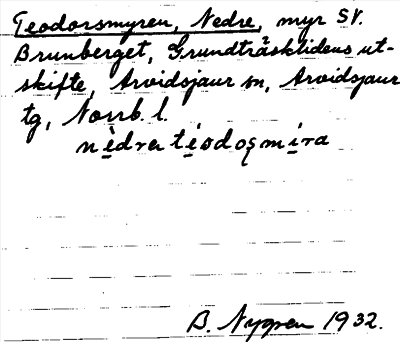 Teodorsmyren, Nedre, myr SV.
Brunberget, Grundträsklidens ut-
skifte, Arvidsjaur sn, Arvidsjaur
tg, Norrb. l.
nèdra tèodoșmìra
B. Nygren 1932.